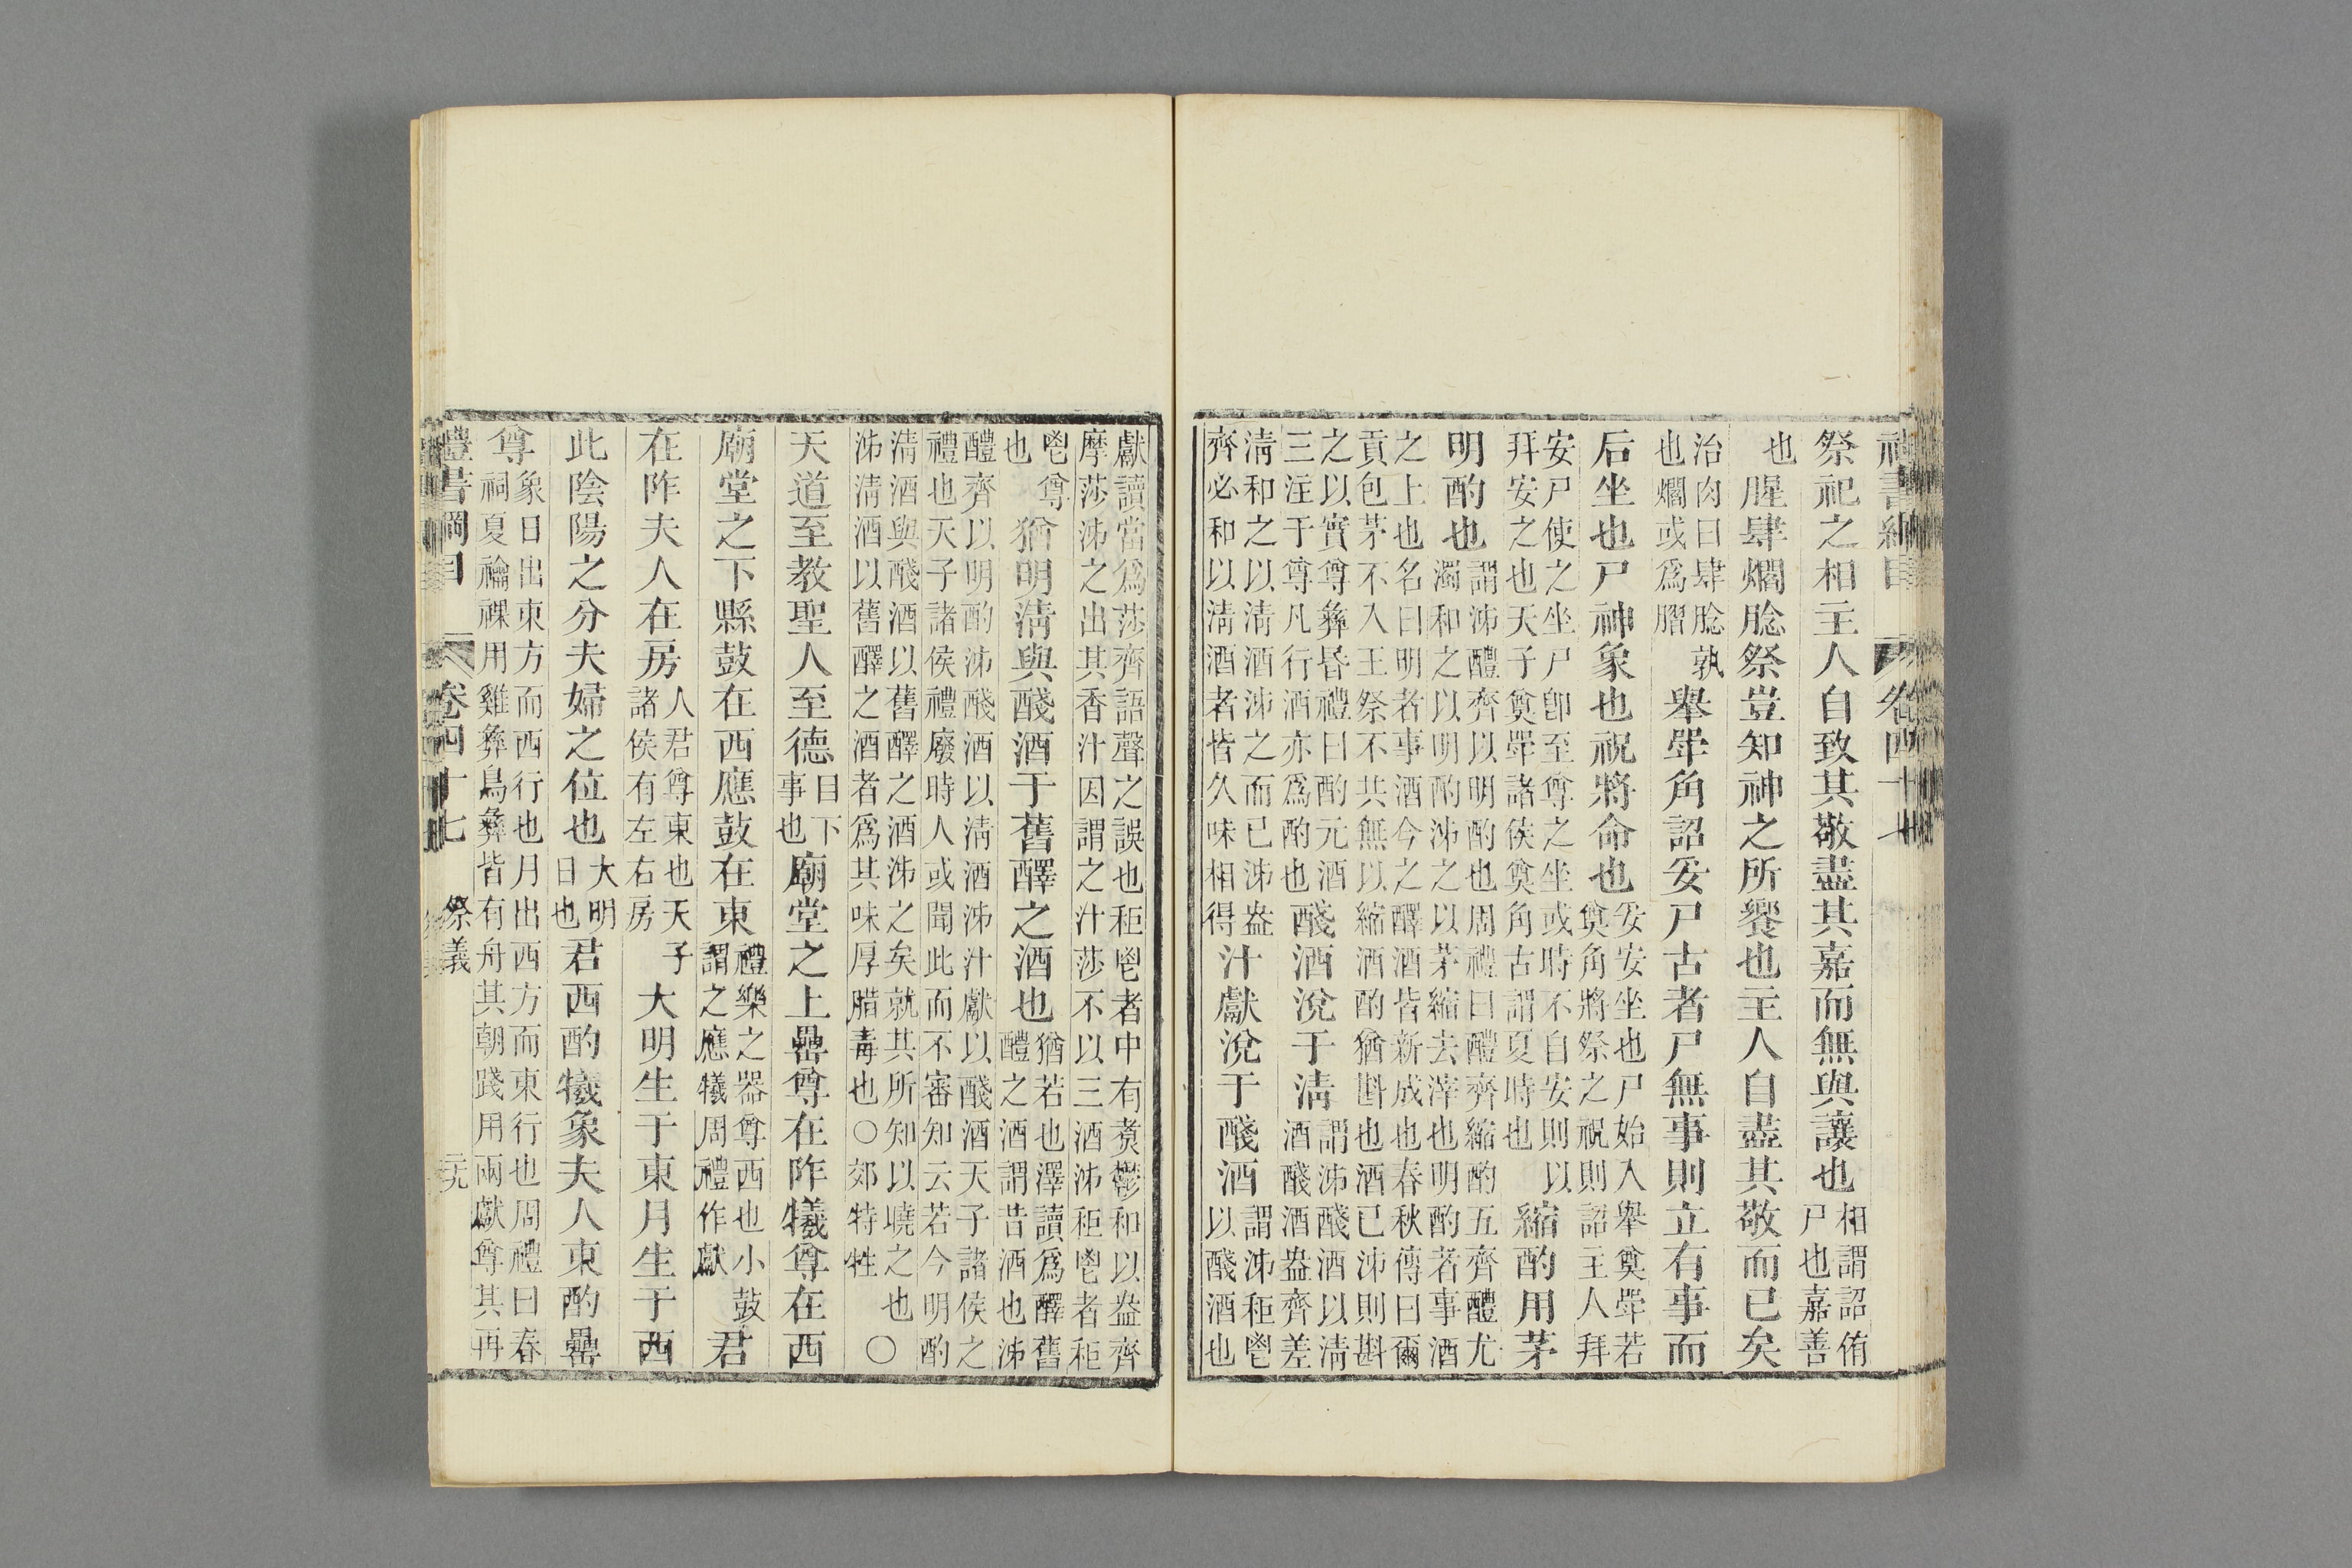 祭祀之相主人自致其敬盡其嘉而無與讓也相謂詔侑尸也嘉善
也腥肆爓腍祭豈知神之所饗也主人自盡其敬而已矣
治肉曰肆腍孰也爓或爲膶舉斝角詔妥尸古者尸無事則立有事而
后坐也尸神象也祝將命也妥安坐也尸始入舉奠斝若奠角將祭之祝則詔主人拜
安尸使之坐尸卽至尊之坐或時不自安則以拜安之也天子奠斝諸侯奠角古謂夏時也縮酌用茅
明酌也謂泲醴齊以明酌也周禮曰醴齊縮酌五齊醴尤濁和之以明酌泲之以茅縮去滓也明酌若事酒
之上也名曰明者事酒今之醳酒皆新成也春秋傳曰爾貢包茅不入王祭不共無以縮酒酌猶斟也酒已泲則斟
之以實尊彝昏禮曰酌元酒三注于尊凡行酒亦爲酌也醆酒涗于淸謂泲醆酒以淸酒醆酒盎齊差
淸和之以淸酒泲之而已泲盎齊必和以淸酒者皆久味相得汁獻涗于醆酒謂泲秬鬯以醆酒也
獻讀當爲莎齊語聲之誤也秬鬯者中有煑鬱和以盎齊摩莎泲之出其香汁因謂之汁莎不以三酒泲秬鬯者秬
鬯尊也猶明淸與醆酒于舊醳之酒也猶若也澤讀爲醳舊醴之酒謂昔酒也泲
醴齊以明酌泲醆酒以淸酒泲汁獻以醆酒天子諸侯之禮也天子諸侯禮廢時人或聞此而不審知云若今明酌
淸酒與醆酒以舊醳之酒泲之矣就其所知以曉之也泲淸酒以舊醳之酒者爲其味厚腊毒也○郊特牲○
天道至教聖人至德目下事也廟堂之上罍尊在阼犧尊在西
廟堂之下縣鼓在西應鼓在東禮樂之器尊西也小鼓謂之應犧周禮作獻君
在阼夫人在房人君尊東也天子諸侯有左右房大明生于東月生于西
此陰陽之分夫婦之位也大明日也君西酌犧象夫人東酌罍
尊象日出東方而西行也月出西方而東行也周禮曰春祠夏禴祼用雞彝鳥彝皆有舟其朝踐用兩獻尊其再
禮書綱目 卷四十七 祭義